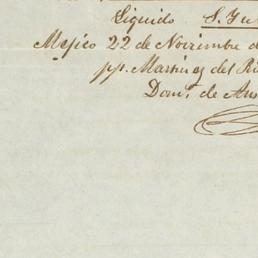 Liquido S. Yu
Mejico 22 de Noviembre d
pp. Martinez del Ri
Dom.º de Ans